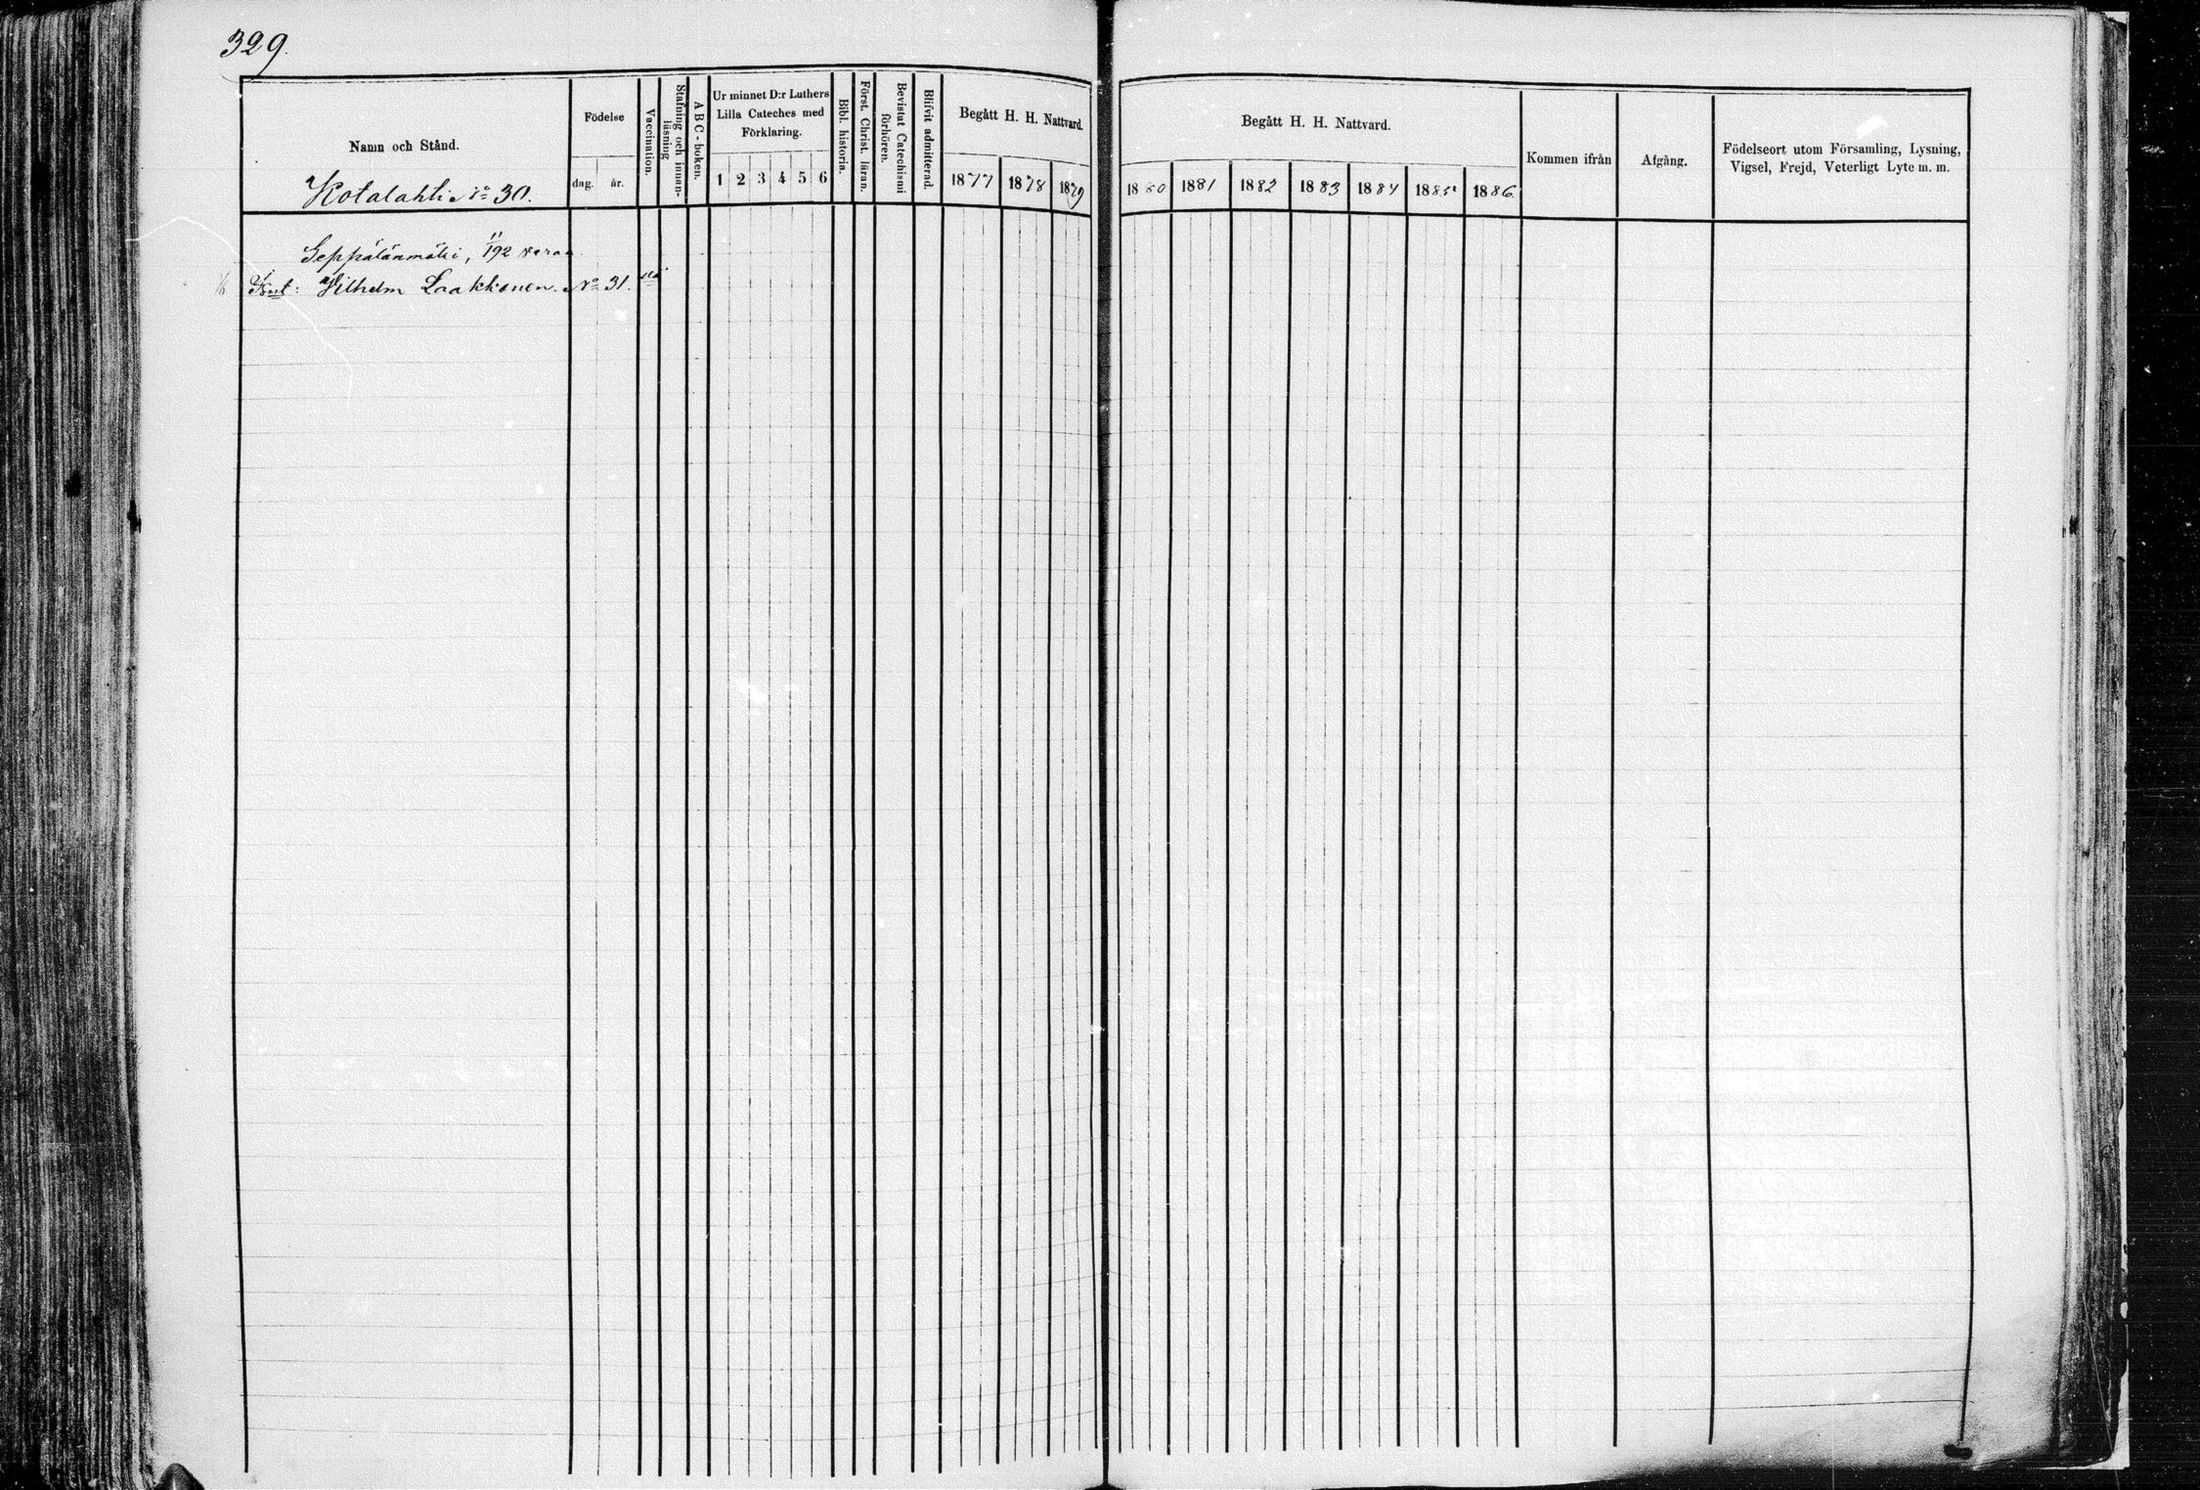 329.
Namn och Stånd.
Kotalahti No 30.
Födelse
dag. år.
Vaccination.
Stafning och innan-
läsning
ABC-boken.
Ur minnet D:r Luthers
Lilla Cateches med
Förklaring.
1 2 3 4 5 6
Bibl. historia.
Först. Christ. läran.
Bevistat Catechismi
förhören.
Blifvit admitterad.
Begått H. H. Nattvard.
1877 1878 1879
Begått H. H. Nattvard.
1880 1881 1882 1883 1884 1885 1886.
Kommen ifrån
Afgång.
Födelseort utom Församling, Lysning,
Vigsel, Frejd, Veterligt Lyte m. m.
Seppälänmäki, 11/192
Vilhelm Laakkonen. No 31.